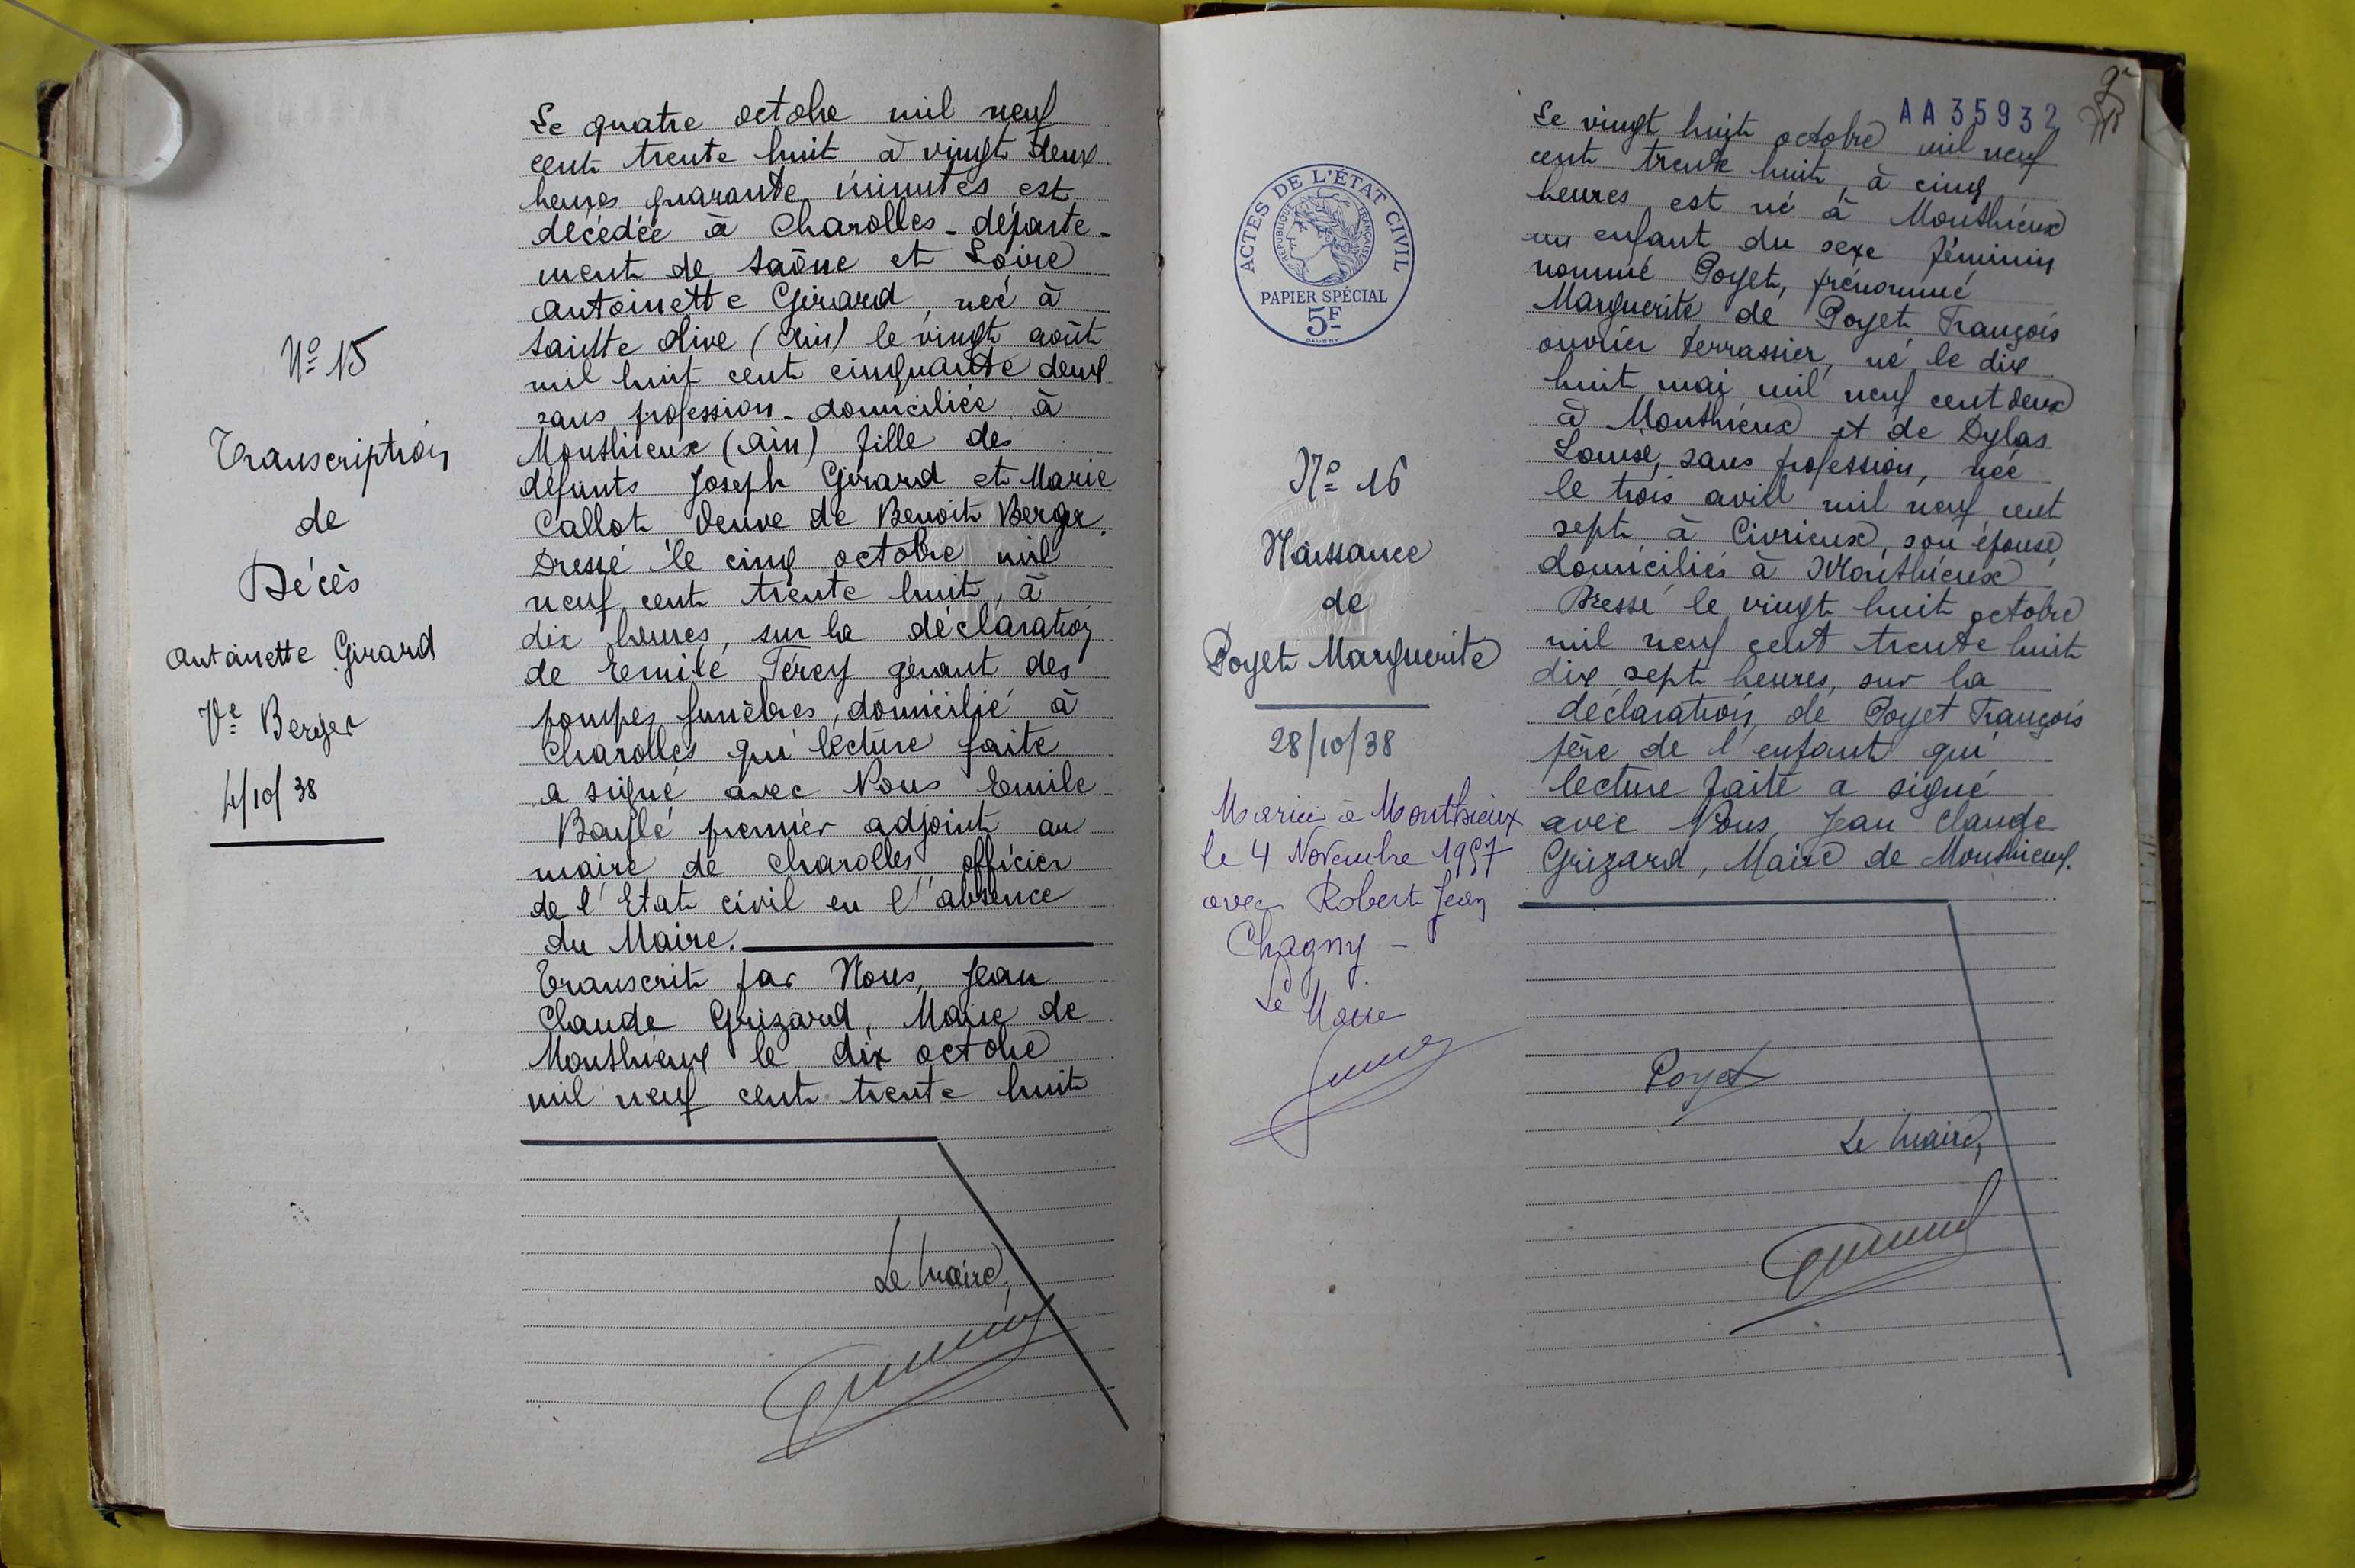 N° 15
Transcription
de
Décès
Antoinette Girard
Ve Berger
4/10/38
Le quatre octobre mil neuf
cent trente huit à vingt deux
heures quarante minutes est
décédée à Charolles - départe-
ment de Saône et Loire
Antoinette Girard, née à
Sainte Olive (Ain) le vingt août
mil huit cent cinquante deux
sans profession - domiciliée à
Monthieux (Ain) fille des
défunts Joseph Girard et Marie
Callot veuve de Benoit Berger.
Dressé le cinq octobre mil
neuf cent trente huit, à
dix heures, sur la déclaration
de Emile Térey gérant des
pompes funèbres, domicilié à
Charolles qui lecture faite
a signé avec Nous Emile
premier adjoint au
maire de Charolles officier
de l'Etat civil en l'absence
du Maire.
Transcrit par Nous, Jean
Claude Grizard, Maire de
Monthieux le dix octobre
mil neuf cent trente huit
Le Maire,
AA35932
ACTES DE L'ÉTAT CIVIL
RÉPUBLIQUE FRANÇAISE
PAPIER SPÉCIAL
5F
N° 16
Naissance
de
Poyet Marguerite
28/10/38
Mariée à Monthieux
le 4 Novembre 1957
avec Robert Jean
Chagny -
Le Maire
Le vingt huit octobre mil neuf
cent trente huit, à cinq
heures est né à Monthieux
un enfant du sexe féminin
nommé Poyet, prénommé
Marguerite de Poyet François
ouvrier terrassier, né le dix
huit mai mil neuf cent deux
à Monthieux et de Dylas
Louise, sans profession, née
le trois avril mil neuf cent
sept à Civrieux, son épouse
domiciliés à Monthieux
Dressé le vingt huit octobre
mil neuf cent trente huit
dix sept heures, sur la
déclaration de Poyet François
père de l'enfant qui
lecture faite a signé
avec Nous, Jean Claude
Grizard, Maire de Monthieux.
Poyet
Le Maire,